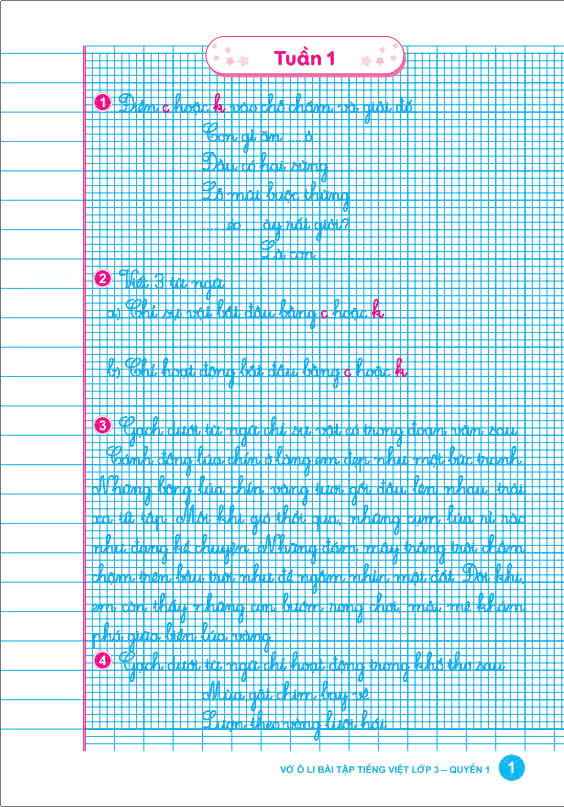 Tuần 1
1 Điền c hoặc k vào chỗ chấm và giải đố
Con gì ăn ....ỏ
Đầu có hai sừng
Lỗ mũi buộc thừng
......éo ....ày rất giỏi?
Là con
2 Viết 3 từ ngữ
a) Chỉ sự vật bắt đầu bằng c hoặc k
b) Chỉ hoạt động bắt đầu bằng c hoặc k
3 Gạch dưới từ ngữ chỉ sự vật có trong đoạn văn sau
Cánh đồng lúa chín ở làng em đẹp như một bức tranh.
Những bông lúa chín vàng tươi gối đầu lên nhau, trải
xa tít tắp. Mỗi khi gió thổi qua, những cụm lúa rì rào
như đang kể chuyện. Những đám mây trắng trôi chầm
chậm trên bầu trời như để ngắm nhìn mặt đất. Đôi khi,
em còn thấy những con bướm rong chơi, mải mê khám
phá giữa biển lúa vàng.
4 Gạch dưới từ ngữ chỉ hoạt động trong khổ thơ sau
Mùa gặt chim bay về
Lượn theo vòng lưỡi hái
VỞ Ô LI BÀI TẬP TIẾNG VIỆT LỚP 3 – QUYỂN 1 1